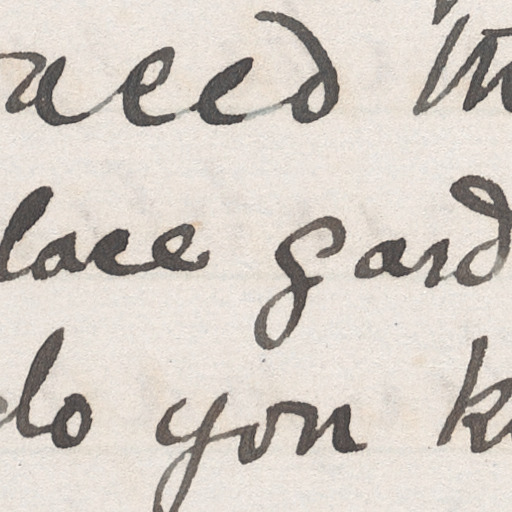 aced th
lace gard
do you k